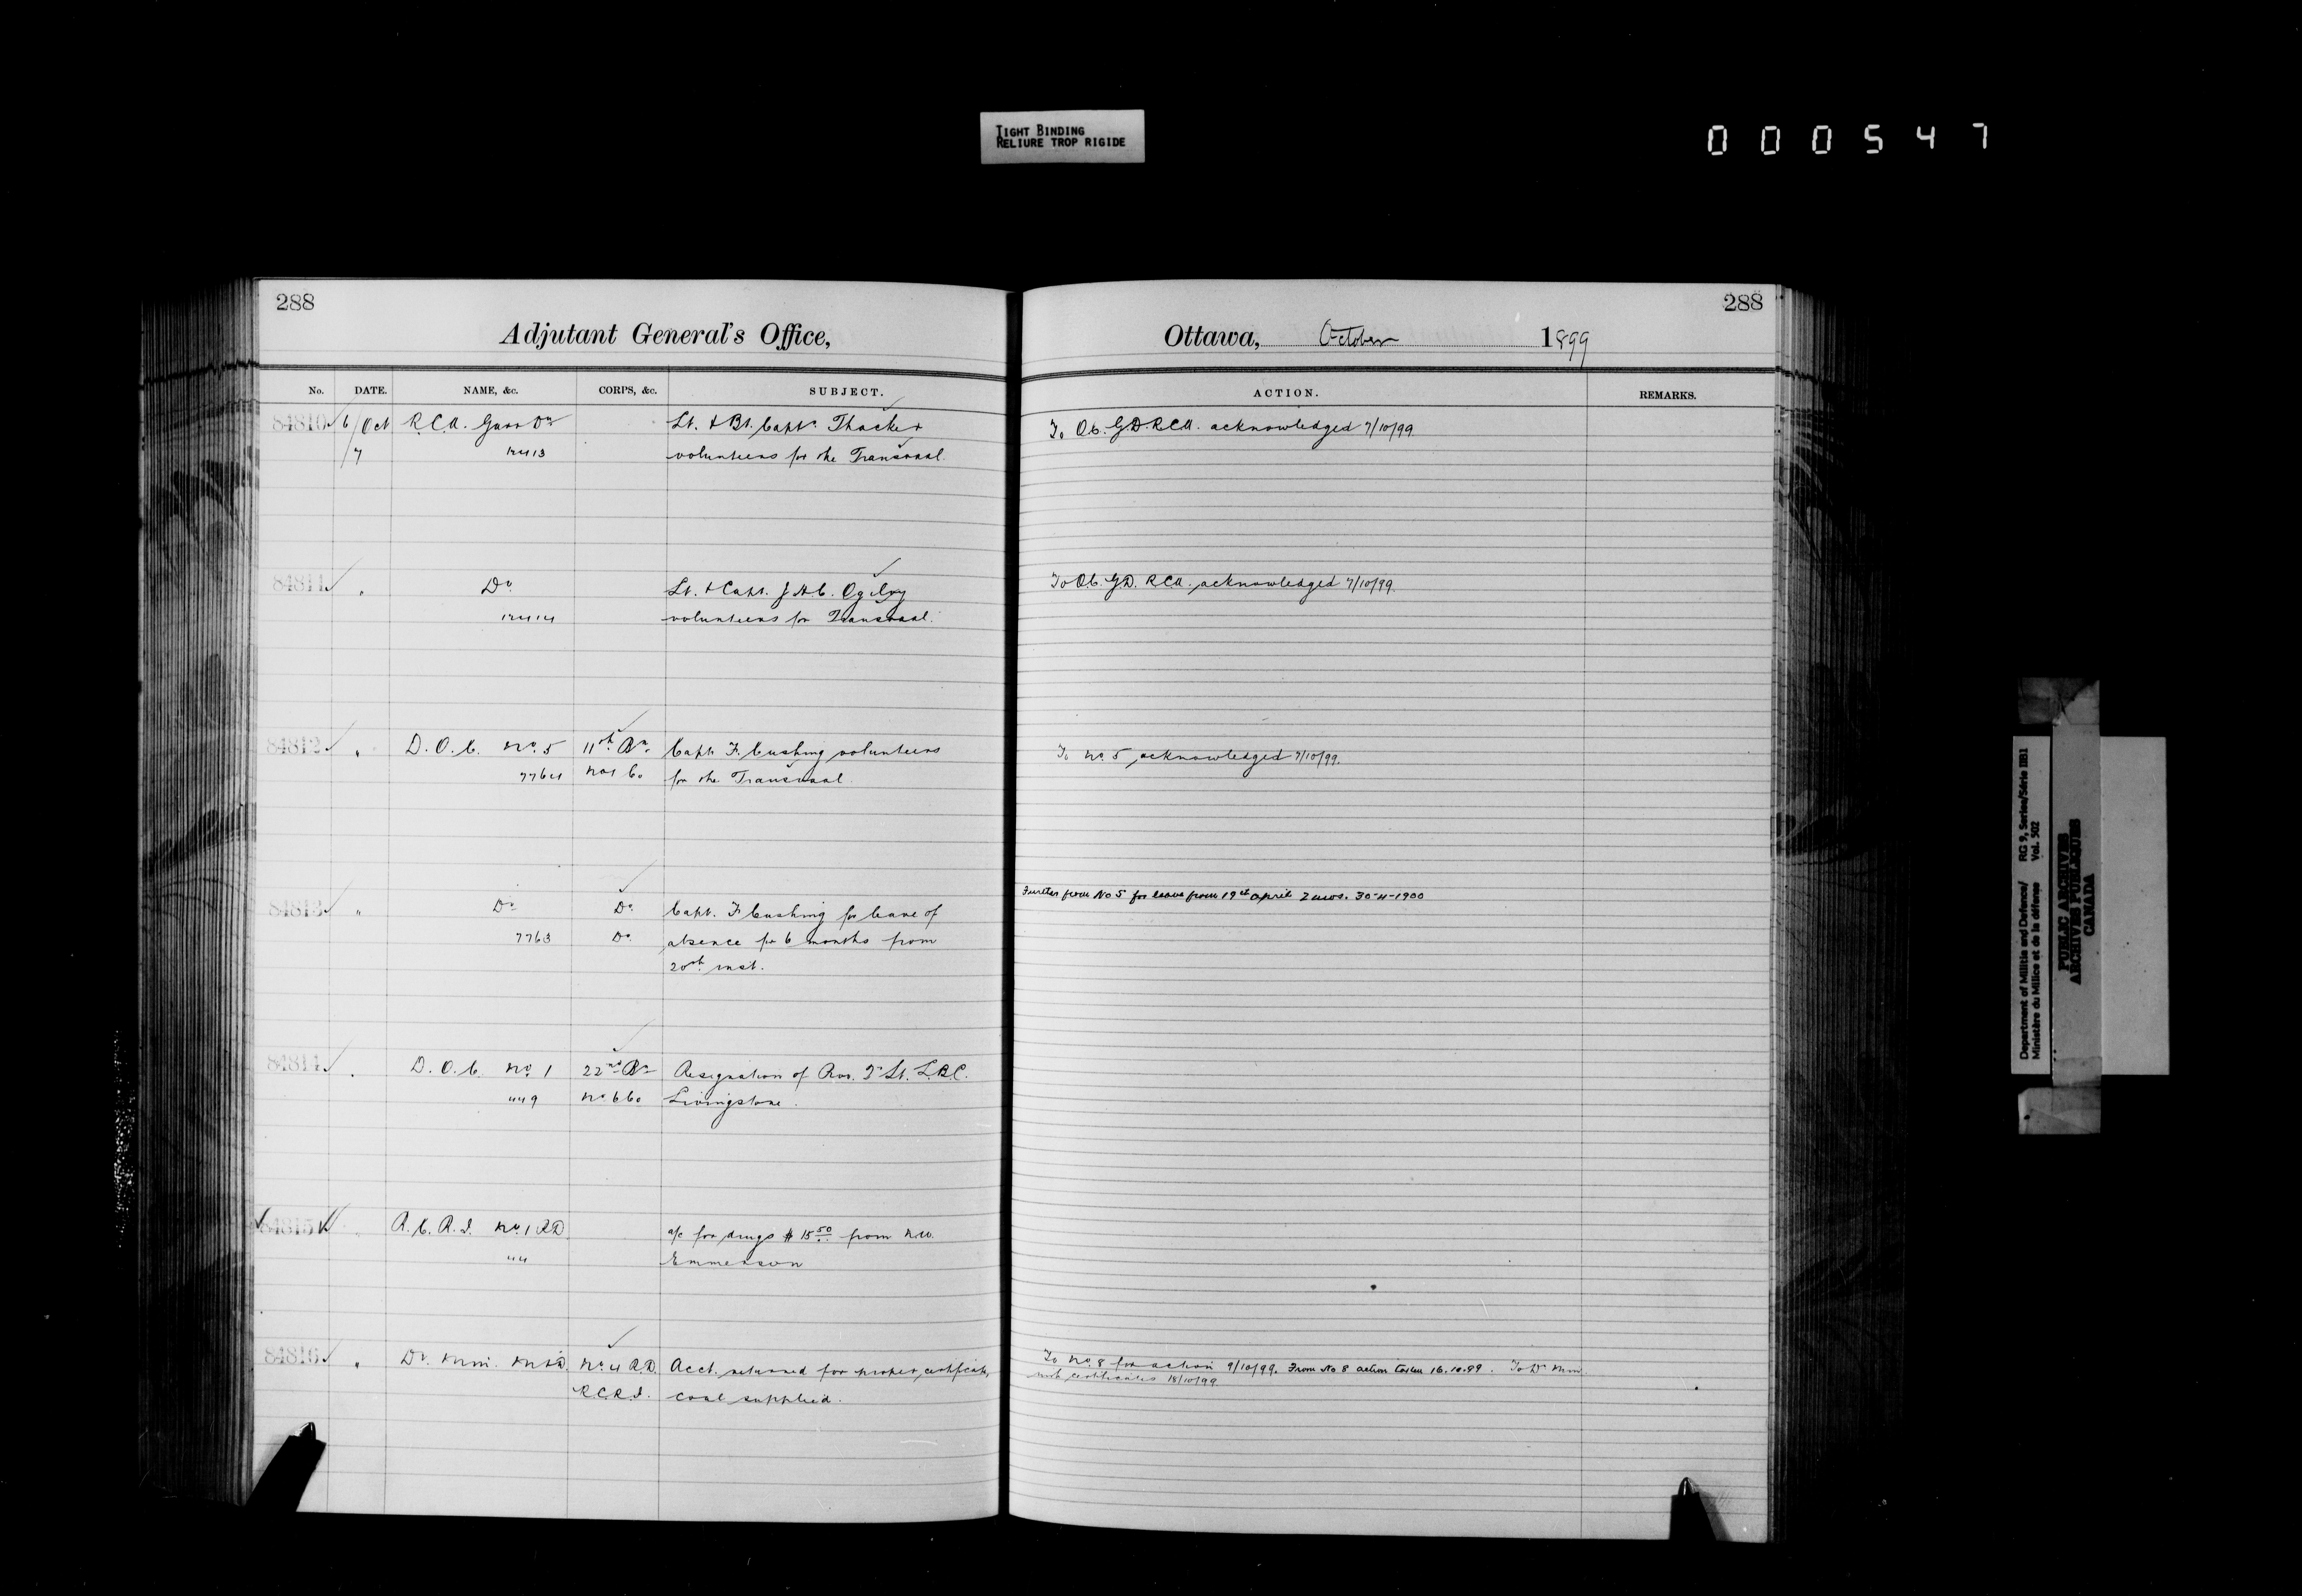 TIGHT BINDING
RELIURE TROP RIGIDE
000547
288
Adjutant General's Office,
No. DATE. NAME, &c. CORPS, &c. SUBJECT.
84810 6/Oct R.C.A. Garr Dn Lt. & Bt. Capt. Thacker
/7 volunteers for the Transvaal.
84811 " Do Lt. & Capt. J.H.C. Ogilvy
volunteers for Transvaal.
84812 " D.O.C. No. 5 11th Bn. Capt. F. Cushing volunteers
7764 No 1 Co for the Transvaal.
84813 " Do Do Capt. F. Cushing for leave of
7763 Do absence for 6 months from
20th inst.
84814 " D.O.C. No. 1 22nd Bn Resignation of Prov. 2nd Lt. L.R.C.
449 No 6 Co Livingstone.
84815 " R.C.R.I. No. 1 R.D. a/c for drugs $15.50 from
44 Emmerson
84816 " No. 4 R.D. Acct. returned for proper certificate,
R.C.R.I. coal supplied.
288
Ottawa, October 1899
ACTION. REMARKS.
To O.C. G.D. R.C.A. acknowledged 7/10/99.
To O.C. G.D. R.C.A. acknowledged 7/10/99.
To No. 5 acknowledged 7/10/99.
Further from No 5 for leave from 19th April 2 mos. 30-4-1900
To No. 8 for action 9/10/99. From No 8 action taken 16.10.99. To
with certificates 18/10/99
Department of Militia and Defence/ RG 9, Series/Série IIB1
Ministère du Milice et de la défense Vol. 502
PUBLIC ARCHIVES
ARCHIVES PUBLIQUES
CANADA